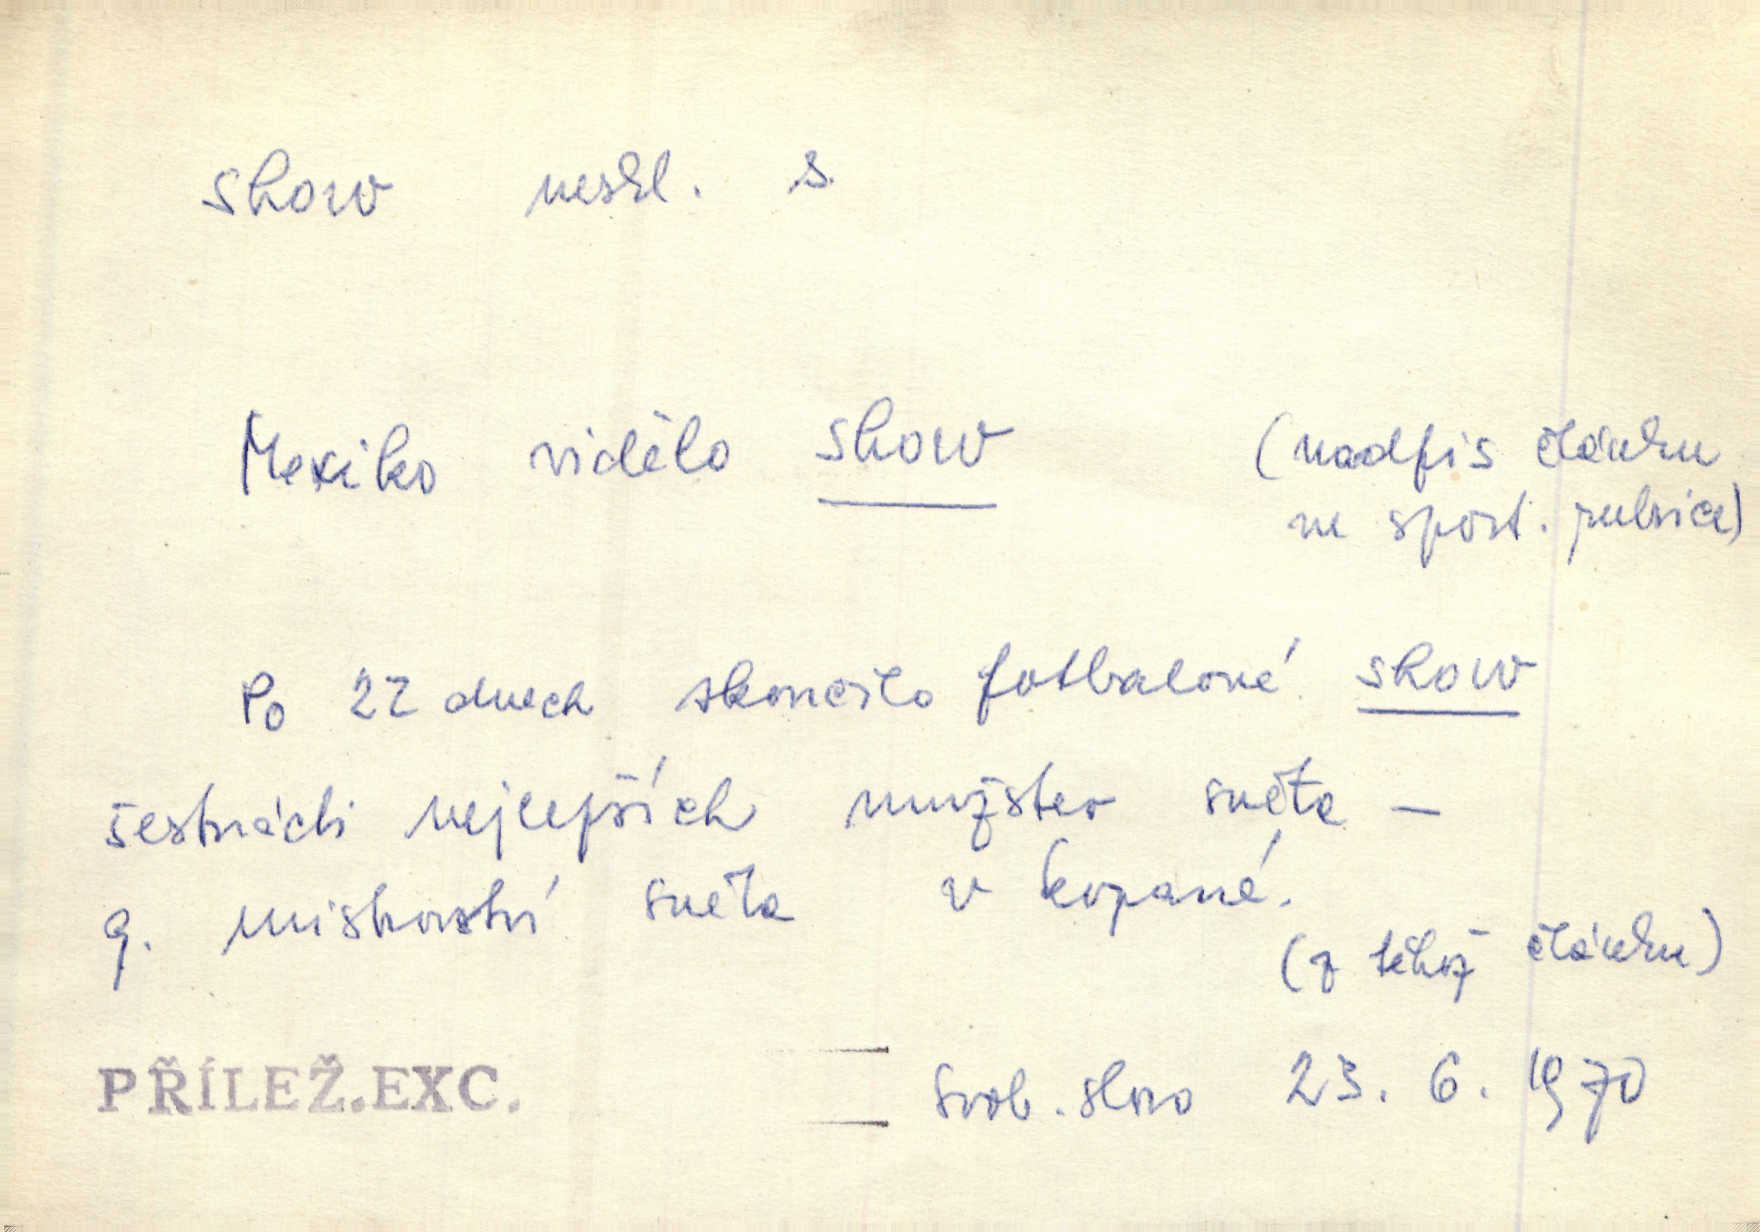 show neskl. s.
Mexiko vidělo show (nadpis článku
ve sport. rubrice)
Po 22 dnech skončilo fotbalové show
šestnácti nejlepších mužstev světa —
9. mistrovství světa v kopané.
(z téhož článku)
PŘÍLEŽ.EXC.
Svob. slovo 23. 6. 1970